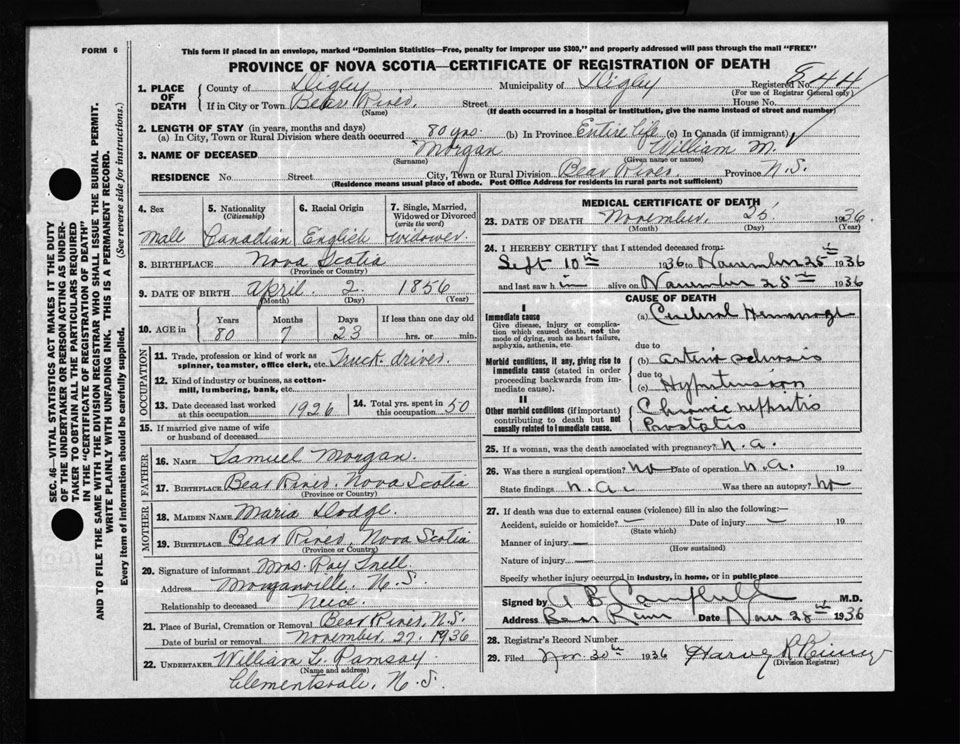 FORM 6
This form if placed in an envelope, marked "Dominion Statistics—Free, penalty for improper use $300," and properly addressed will pass through the mail "FREE"
PROVINCE OF NOVA SCOTIA—CERTIFICATE OF REGISTRATION OF DEATH
1. PLACE OF DEATH { County of Digby Municipality of Digby Registered No. 844
(For use of Registrar General only)
If in City or Town Bear River Street House No.
(Name) (If death occurred in a hospital or institution, give the name instead of street and number)
2. LENGTH OF STAY (in years, months and days)
(a) In City, Town or Rural Division where death occurred 80 yrs. (b) In Province Entire life (c) In Canada (if immigrant)
3. NAME OF DECEASED Morgan William M.
(Surname) (Given name or names)
RESIDENCE No. Street City, Town or Rural Division Bear River Province N.S.
(Residence means usual place of abode. Post Office Address for residents in rural parts not sufficient)
4. Sex 5. Nationality (Citizenship) 6. Racial Origin 7. Single, Married, Widowed or Divorced (write the word)
Male Canadian English Widower
8. BIRTHPLACE Nova Scotia
(Province or Country)
9. DATE OF BIRTH April 2 1856
(Month) (Day) (Year)
10. AGE in Years Months Days If less than one day old
80 7 23 hrs. or min.
OCCUPATION
11. Trade, profession or kind of work as spinner, teamster, office clerk, etc. Truck driver
12. Kind of industry or business, as cotton-mill, lumbering, bank, etc.
13. Date deceased last worked at this occupation 1926 14. Total yrs. spent in this occupation 50
15. If married give name of wife or husband of deceased
FATHER
16. NAME Samuel Morgan.
17. BIRTHPLACE Bear River, Nova Scotia
(Province or Country)
MOTHER
18. MAIDEN NAME Maria Dodge.
19. BIRTHPLACE Bear River, Nova Scotia
(Province or Country)
20. Signature of informant Mrs. Roy Snell
Address Morganville, N.S.
Relationship to deceased Neice.
21. Place of Burial, Cremation or Removal Bear River, N.S.
Date of burial or removal November 27. 1936
22. UNDERTAKER William L. Ramsay
(Name and address)
Clementsvale, N.S.
MEDICAL CERTIFICATE OF DEATH
23. DATE OF DEATH November 25 1936.
(Month) (Day) (Year)
24. I HEREBY CERTIFY that I attended deceased from:
Sept 10th 1936 to November 25th 1936
and last saw him alive on November 25th 1936
CAUSE OF DEATH
I
Immediate cause
Give disease, injury or complication which caused death, not the mode of dying, such as heart failure, asphyxia, asthenia, etc.
(a) Cerebral Hemorrhage
due to
Morbid conditions, if any, giving rise to immediate cause (stated in order proceeding backwards from immediate cause).
(b) arterio sclerosis
due to
(c) Hypertension
II
Other morbid conditions (if important) contributing to death but not causally related to immediate cause.
Chronic nephritis
Prostatis
25. If a woman, was the death associated with pregnancy? n.a.
26. Was there a surgical operation? no Date of operation n.a. 19
State findings n.a. Was there an autopsy? no
27. If death was due to external causes (violence) fill in also the following:—
Accident, suicide or homicide? — Date of injury — 19
(State which)
Manner of injury —
(How sustained)
Nature of injury —
Specify whether injury occurred in industry, in home, or in public place
Signed by A B Campbell M.D.
Address Bear River Date Nov 28th 1936
28. Registrar's Record Number
29. Filed Nov. 30th 1936 Harvey
(Division Registrar)
SEC. 46—VITAL STATISTICS ACT MAKES IT THE DUTY
OF THE UNDERTAKER OR PERSON ACTING AS UNDER-
TAKER TO OBTAIN ALL THE PARTICULARS REQUIRED
IN THE "CERTIFICATE OF REGISTRATION OF DEATH"
AND TO FILE THE SAME WITH THE DIVISION REGISTRAR WHO SHALL ISSUE THE BURIAL PERMIT.
WRITE PLAINLY WITH UNFADING INK. THIS IS A PERMANENT RECORD.
Every item of information should be carefully supplied. (See reverse side for instructions.)